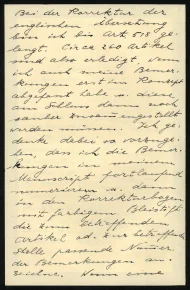 Bei der Korrektur der
englischen Übersetzung
bin ich bis Art 518 ge-
langt. Circa 260 Artikel
sind also erledigt, wenn
ich auch meine Bemer-
kungen erst im Konzept
abgefasst habe u. diese
am Schluss dann noch
sauber zusammengestellt
werden müssen. Ich ge-
denke dabei so vorzuge-
hen, dass ich die Bemer-
kungen in meinem
Manuscript fortlaufend
numerieren u. dann
in den Korrekturbogen
mit farbigem Bleistift
die zum betreffenden
Artikel od. zur betreffenden
Stelle passende Nummer
der Bemerkungen an-
zeichne. Wenn eine